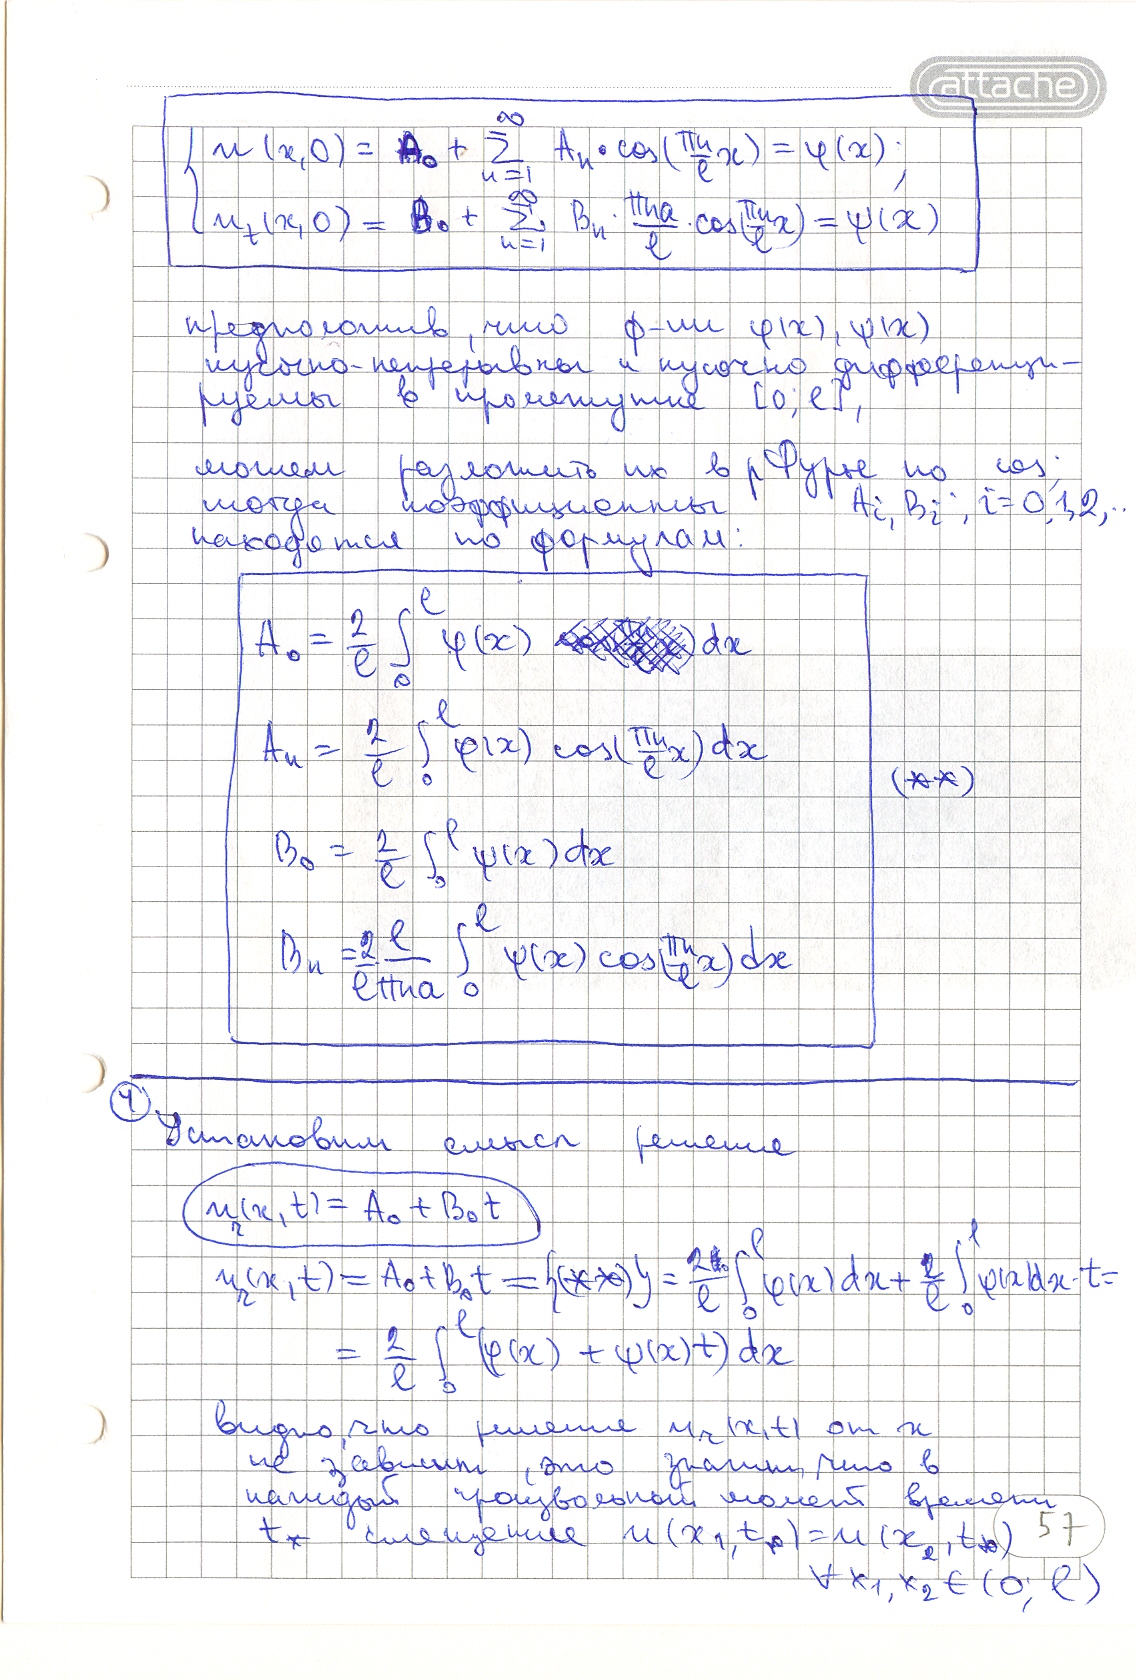 attache
u(x,0) = A₀ + ∑_{n=1}^{∞} Aₙ·cos(πn/ℓ x) = φ(x);
u_t(x,0) = B₀ + ∑_{n=1}^{∞} Bₙ·πna/ℓ·cos(πn/ℓ x) = ψ(x)
предположив, что ф-ии φ(x), ψ(x)
кусочно-непрерывны и кусочно дифференци-
руемы в промежутке [0; ℓ],
можем разложить их в р Фурье по cos;
тогда коэффициенты A_i, B_i, i=0,1,2,..
находятся по формулам:
A₀ = 2/ℓ ∫₀^ℓ φ(x) dx
Aₙ = 2/ℓ ∫₀^ℓ φ(x) cos(πn/ℓ x) dx
(**)
B₀ = 2/ℓ ∫₀^ℓ ψ(x) dx
Bₙ = 2/ℓ ℓ/πna ∫₀^ℓ ψ(x) cos(πn/ℓ x) dx
4
Установим смысл решения
u_r(x,t) = A₀ + B₀t
u_r(x,t) = A₀ + B₀t = {(**)} = 2/ℓ ∫₀^ℓ φ(x)dx + 2/ℓ ∫₀^ℓ ψ(x)dx·t =
= 2/ℓ ∫₀^ℓ (φ(x) + ψ(x)t) dx
видно, что решение u_r(x,t) от x
не зависит, это значит, что в
каждый произвольный момент времени
t_* смещение u(x₁,t_*) = u(x₂,t_*)
57
∀ x₁,x₂ ∈ (0; ℓ)